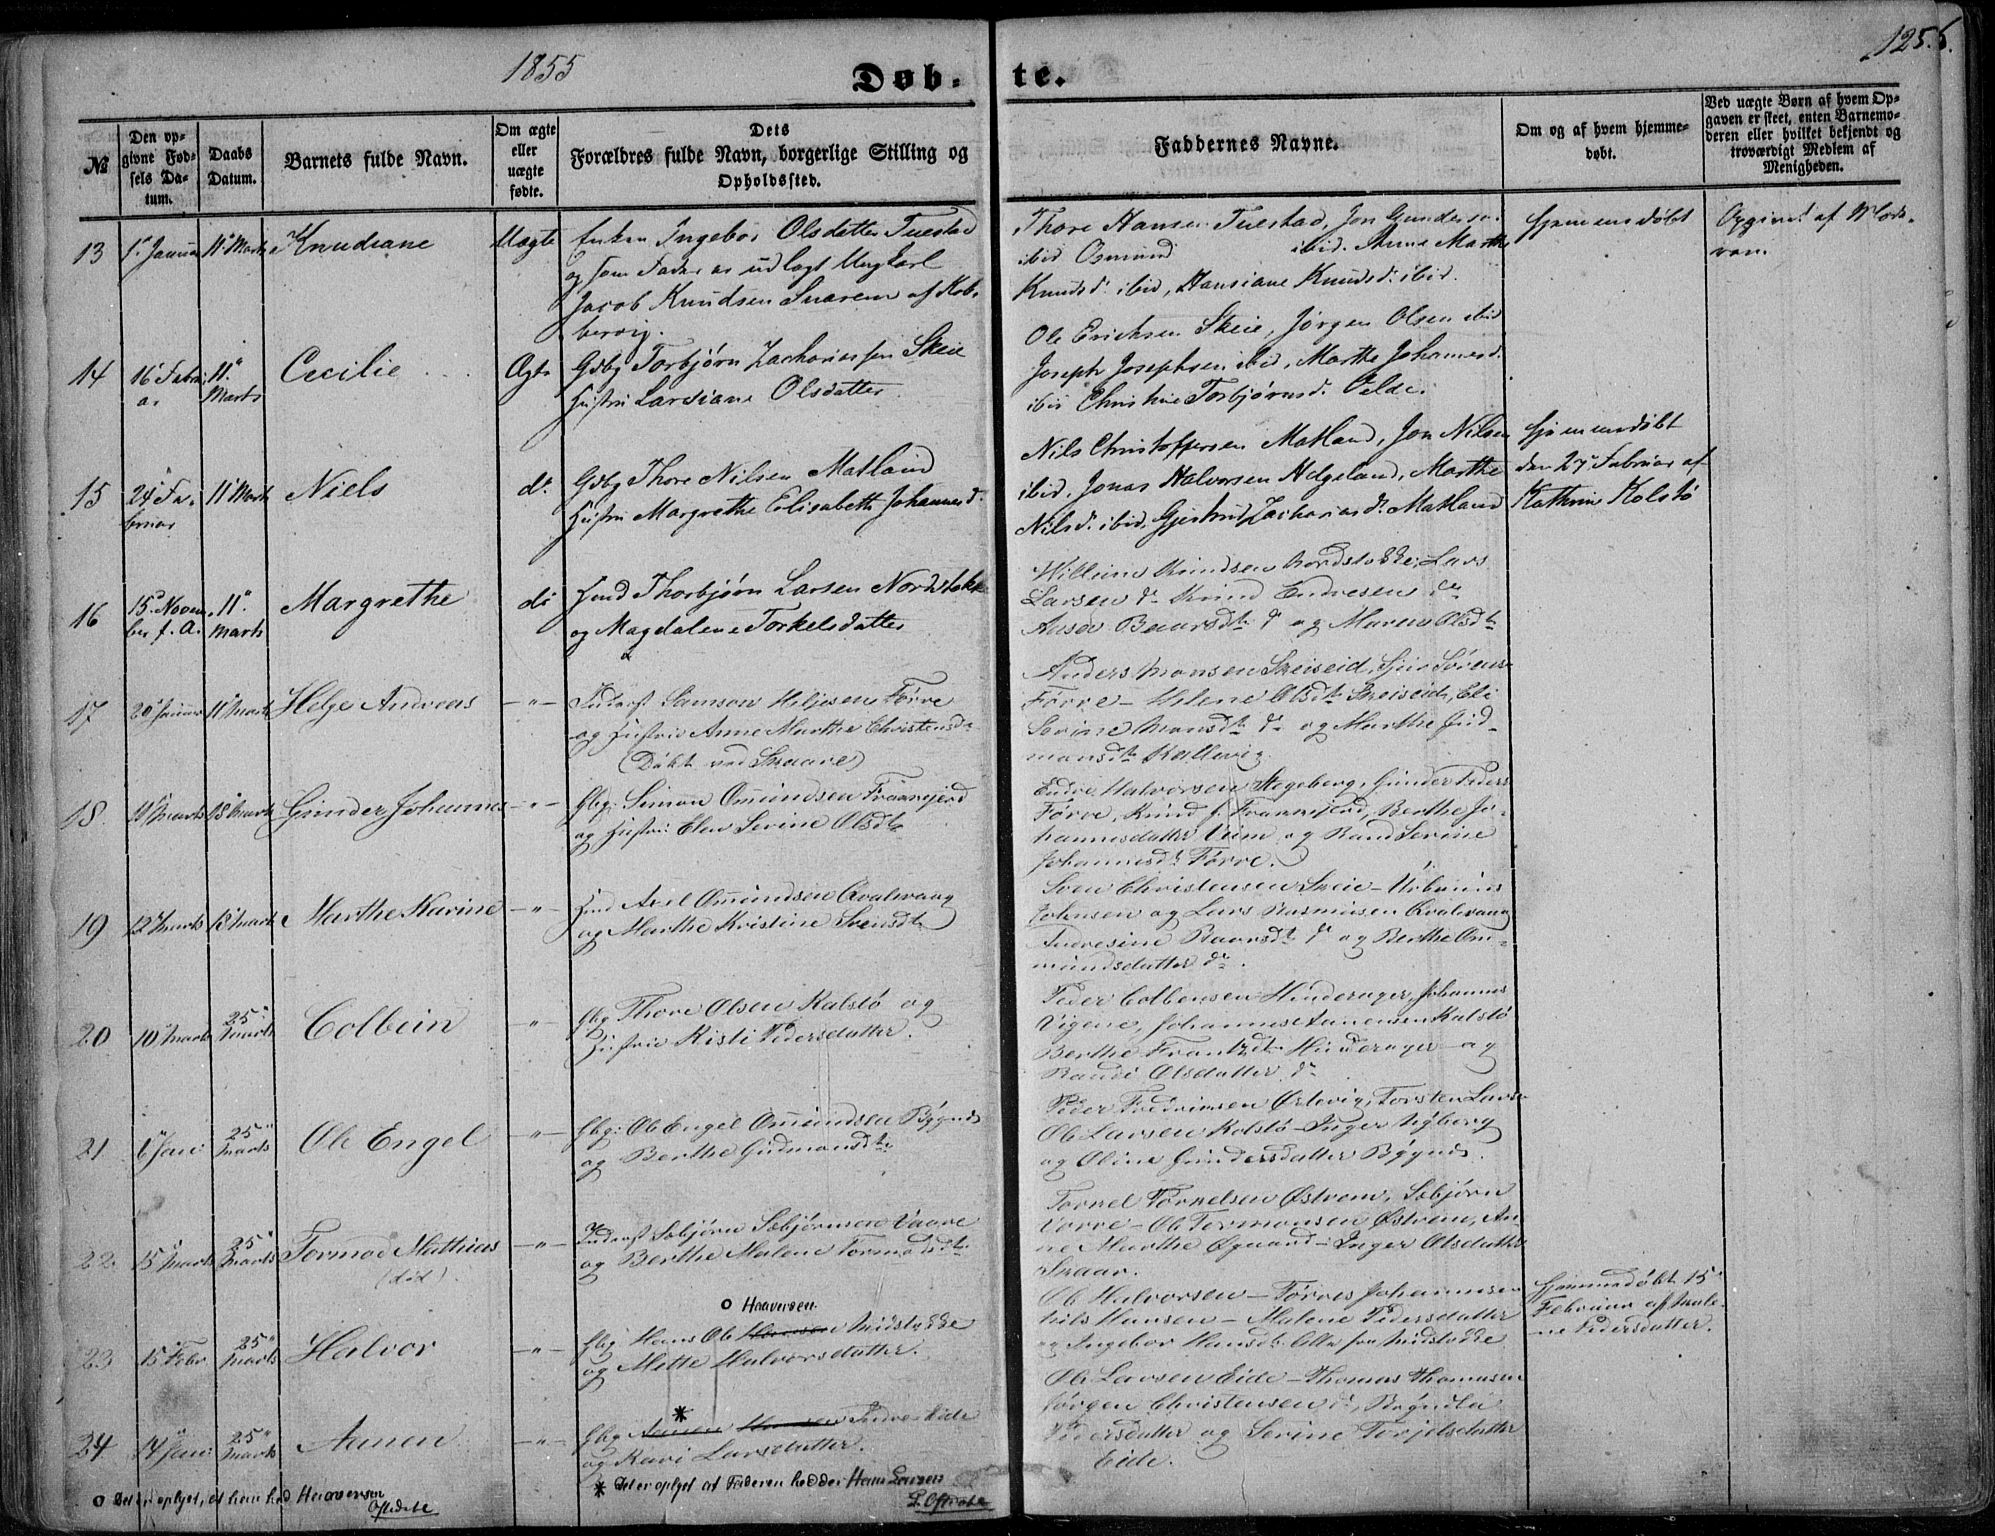 1855
Døb-
te.
125.
№
Den opgivne Fødsels Datum.
Daabs Datum.
Barnets fulde Navn.
Om ægte eller uægte fødte.
Dets Forældres fulde Navn, borgerlige Stilling og Opholdssted.
Faddernes Navne.
Om og af hvem hjemmedøbt.
Ved uægte Børn af hvem Opgaven er skeet, enten Barnemoderen eller hvilket bekjendt og troværdigt Medlem af Menigheden.
13 Januar 11 Marts Knudiane Uægte Enken Ingebor Olsdatter Tuestad
og som Fader er udlagt Ungkarl
Jacob Knudsen Snarem af Kob-
bervig.
Thore Hansen Tuestad, Jon Gunderse
ibid Osmund ibid. Anne Marthe
Knudsd. ibid, Hansiane Knudsd. ibid.
Hjemmedøbt
Opgivet af Mode-
ren.
14 16 Febru
ar 11 Marts Cecilie Ægte Gdbg Torbjørn Zachariassen Skeie
Hustru Larsiane Olsdatter
Ole Ericksen Skeie, Jørgen Olsen ibid
Joseph Josephsen ibid, Marthe Johannesd.
ibid Christine Torbjørnsd. Velde.
15 24 Fe-
bruar 11 Marts Niels do. Gdbg Thore Nilsen Matland
Hustru Margrethe Elisabeth Johannesd.
Nils Christoffersen Matland, Jon Nilsen
ibid, Jonas Halvorsen Helgeland, Marthe
Nilsd. ibid, Gjertrud Zachariasd. Matland
Hjemmedøbt
den 27 Februar af
Kathrine Kolstø
16 15 Novem
ber f. A. 11 Marts Margrethe do Huusmd Thorbjørn Larsen Nordstokke
og Magdalene Torkelsdatter
Willum Knudsen Nordstokke, Lars
Larsen do Knud Endresen do
Baarsdt. do og Maren Olsdt.
17 20 Januar 11 Marts Helge Andreas -"- Inderst Samson Helgesen Førre
og Hustrue Anne Marthe Christensdt.
(Døbt ved Skaare)
Anders Monsen Skeiseid, Sjur Sørens
Førre - Helene Olsdt. Skeiseid, Eli
Serine Monsdt. do og Marthe Gud-
mansdt. Kallevig
18 11 Marts 18 Marts Gunder Johannes -"- Gbg: Simon Omundsen Frannjerd
og Hustru Elen Serine Olsdt.
Endre Halvorsen Stegeberg, Gunder Peders
Førre, Knud J. Frannjerd, Berthe Jo-
hannesdatter Viim og Rand Serine
Johannesdt. Førre.
19 12 Marts 18 Marts Marthe Karine -"- Huusmd Axel Omundsen Qvalevaag
og Marthe Kristine Svensdt.
Sven Christensen Skeie - Urbanus
Johnsen og Lars Rasmusen Qvalevaag
Andresine Baarsdt. do og Berthe Om-
mundsdatter do.
20 10 Marts 25 Marts Colbein -"- Gbg Thore Olsen Kalstø og
Hustrue Kisti Pedersdatter.
Peder Colbensen Hinderager, Johannes
Vigene, Johannes Aanensen Kalstø
Berthe Frantzdt. Hinderager og
Randi Olsdatter do
21 6 Jan: 25 Marts Ole Engel -"- Gbg: Ole Engel Omundsen Bøgnes
og Berthe Gudmansdt.
Peder Fredriksen Østevig, Torsten Larsen
Ole Larsen Kolstø - Inger Vigberg
og Oline Gundersdatter Bøgnes.
22 15 Marts 25 Marts Tormod Mathias
(død).
-"- Inderst Sebjørn Sebjørnsen Vaare
og Berthe Malene Tormodsdt.
Tornel Tornelsen Østrem, Sebjørn
Vorre - Ole Tormonsen Østrem, An-
ne Marthe Øgaard - Inger Olsdatter
Skaar.
23 15 Febr 25 Marts Halvor -"- o Haaversen
Gbg Hans Ole Midstokke
og Mette Halvorsdatter.
Ole Halvorsen - Tørres Johannesen
Nils Hansen - Malene Pedersdatter
og Ingebor Hansdt. Alle fra Midstokke
Hjemmedøbt 15
Februar af Male-
ne Pedersdatter.
24 14 Jan: 25 Marts Aanen -"- *
Gbg Aanen Hansen Indre Eide
og Kari Larsdatter.
* Det er oplyst at Faderen hedder Hans Larsen
L. Oftedal
Ole Larsen Eide - Thomas Thomasen
Jørgen Christensen do, Ragnilla
Pedersdatter og Serine Terjelsdatter
Eide.
o Det er oplyst, at han hed Haaversen
Oftedal